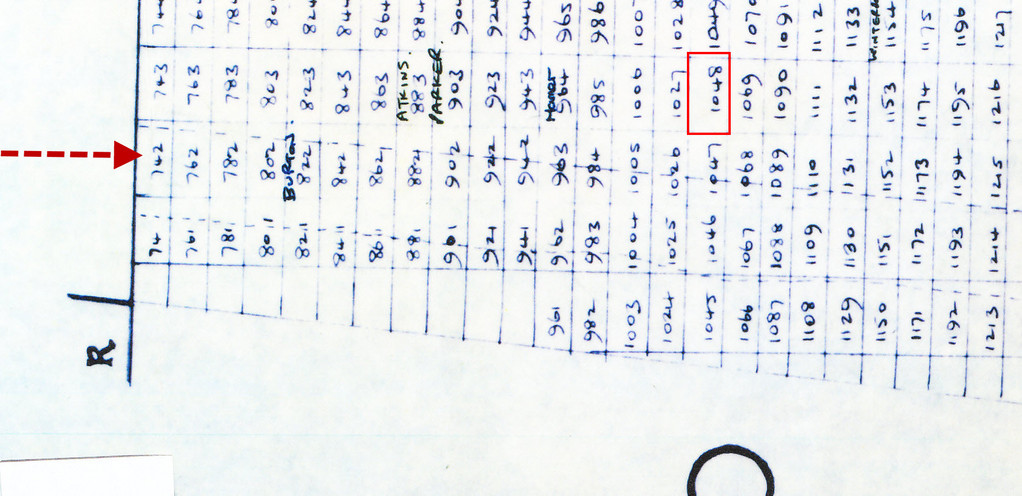 R
741 742 743 744
761 762 763 764
781 782 783 784
801 802 803
BURTON.
821 822 823 824
841 842 843 844
861 862 863 864
ATKINS.
881 882 883 884
PARKER.
901 902 903 904
921 922 923 924
941 942 943 944
Homer
961 962 963 964 965
982 983 984 985 986
1003 1004 1005 1006 1007
1024 1025 1026 1027 1028
1045 1046 1047 1048 1049
1066 1067 1068 1069 1070
1087 1088 1089 1090 1091
1108 1109 1110 1111 1112
1129 1130 1131 1132 1133
1150 1151 1152 1153 1154
1171 1172 1173 1174 1175
1192 1193 1194 1195 1196
1213 1214 1215 1216 1217